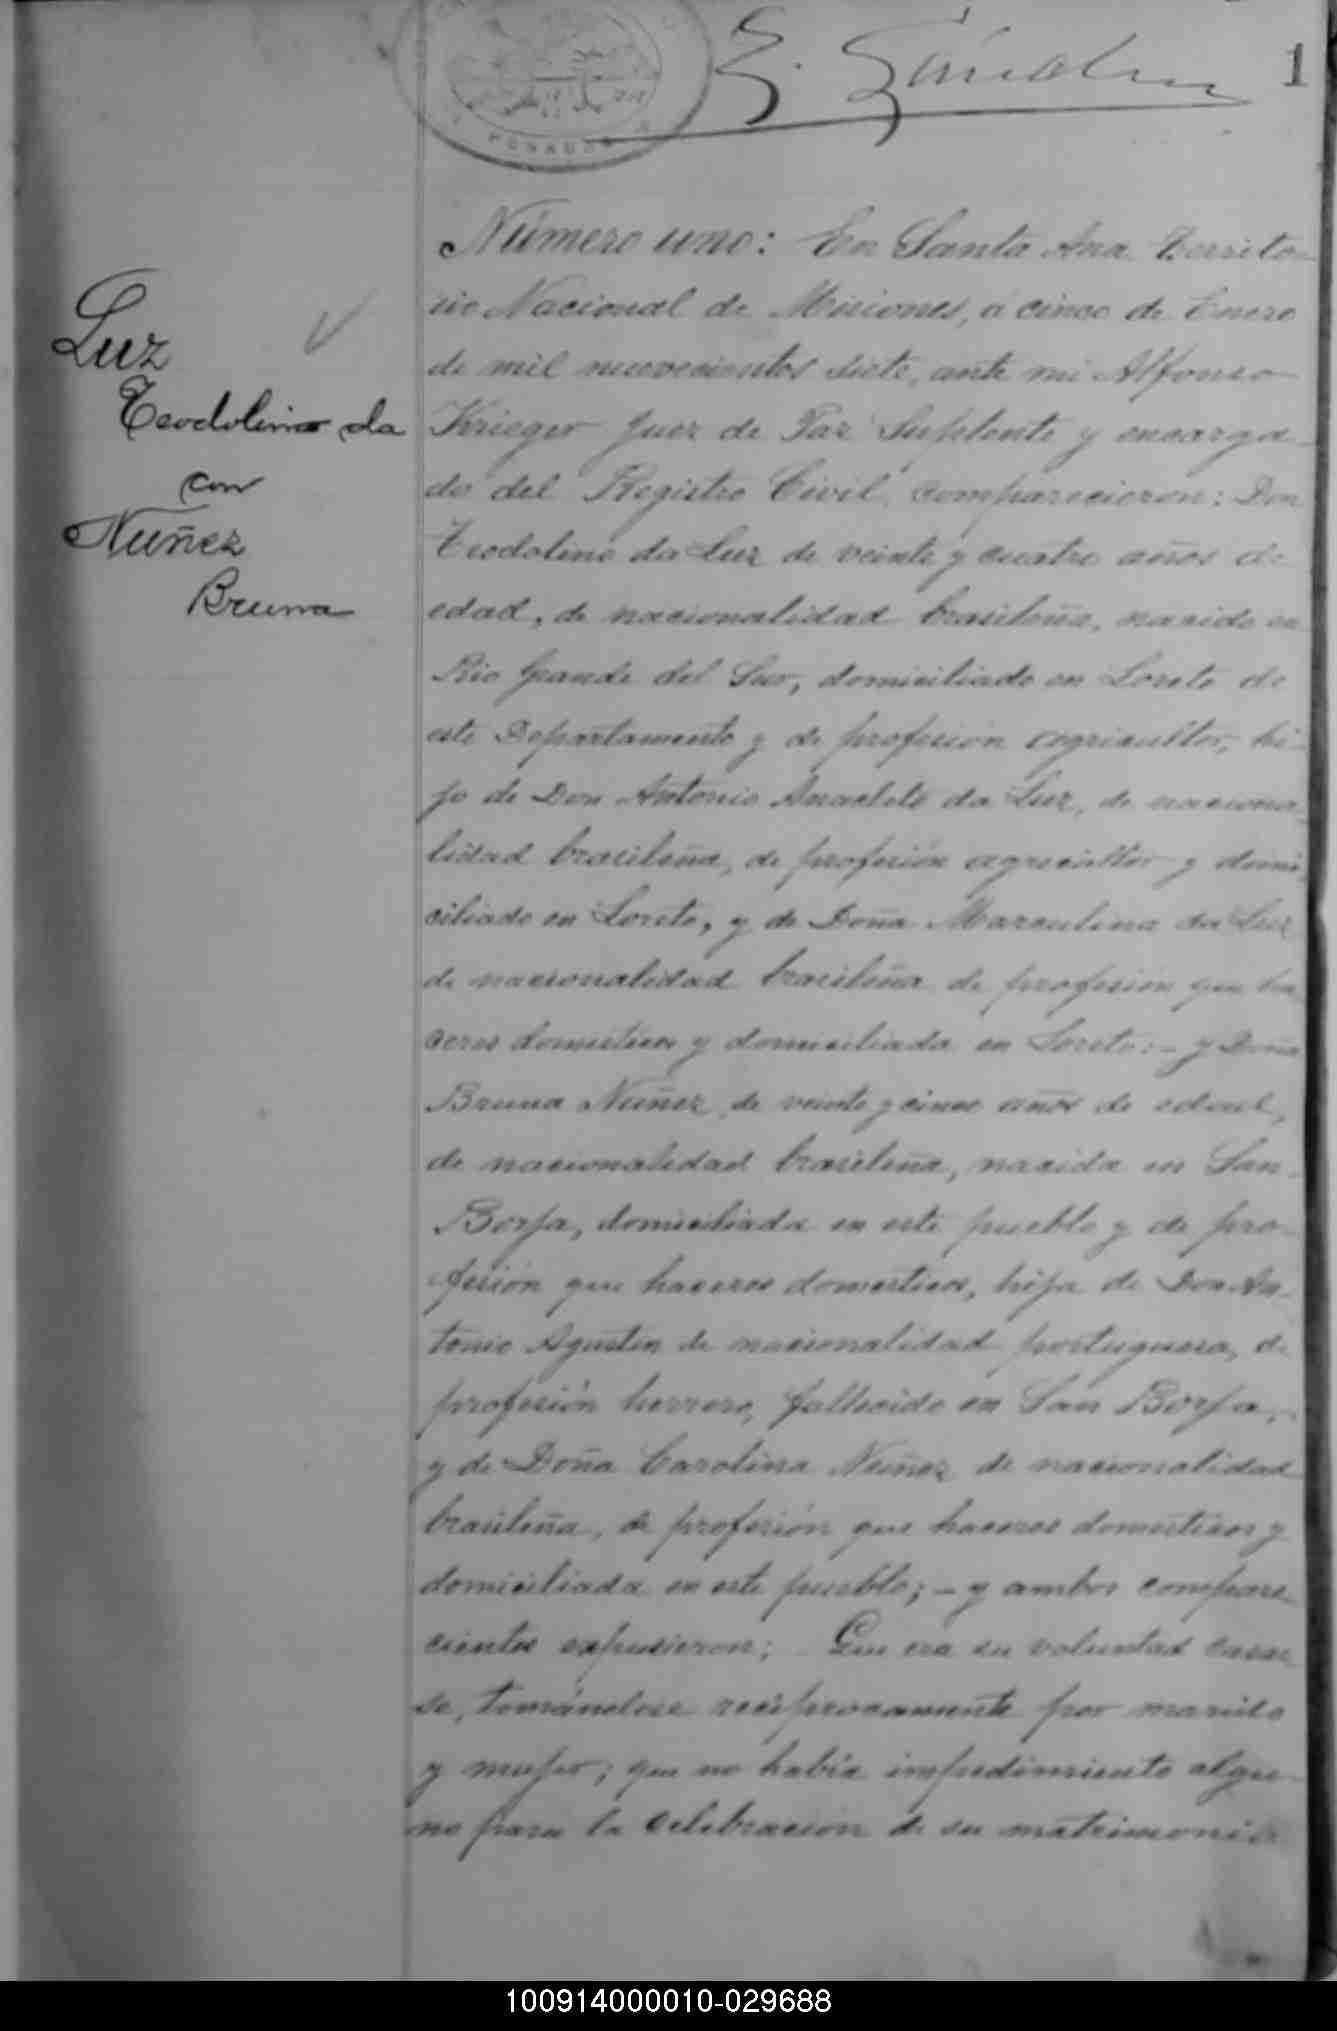 1
POSADAS
Luz
Teodolino da
con
Nuñez
Bruna
Número uno: En Santa Ana Territo-
rio Nacional de Misiones, á cinco de Enero
de mil nuevecientos siete, ante mi Alfonso
Krieger Juez de Paz Suplente y encarga-
do del Registro Civil, comparecieron: Don
Teodolino da Luz de veinte y cuatro años de
edad, de nacionalidad brasileña, nacido en
Rio Grande del Sur, domiciliado en Loreto de
este Departamento y de profesión agricultor, hi-
jo de Don Antonio Anacleto da Luz, de naciona-
lidad brasileña, de profesión agricultor y domi-
ciliado en Loreto, y de Doña Marculina da Luz
de nacionalidad brasileña de profesión que ha-
ceres domesticos y domiciliada en Loreto: - y Doña
Bruna Nuñez, de veinte y cinco años de edad,
de nacionalidad brasileña, nacida en San
Borja, domiciliada en este pueblo y de pro-
fesión que haceres domesticos, hija de Don An-
tonio Agustin de nacionalidad portuguesa, de
profesión herrero, fallecido en San Borja,
y de Doña Carolina Nuñez de nacionalidad
brasileña, de profesión que haceres domesticos y
domiciliada en este pueblo; - y ambos compare-
cientes expusieron; Que era su voluntad casar
se, tomándose reciprocamente por marido
y mujer; que no había impedimiento algu-
no para la celebración de su matrimonio
100914000010-029688